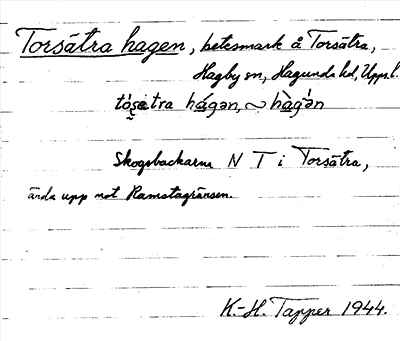 Torsätra hagen, betesmark å Torsätra,
Hagby sn, Hagunda hd, Upps.l.
tó̀s̬ätra hágən, ~ hàgə́n
Skogsbackarna N T i Torsätra,
ända upp mot Ramstagränsen.
K.-H. Tapper 1944.